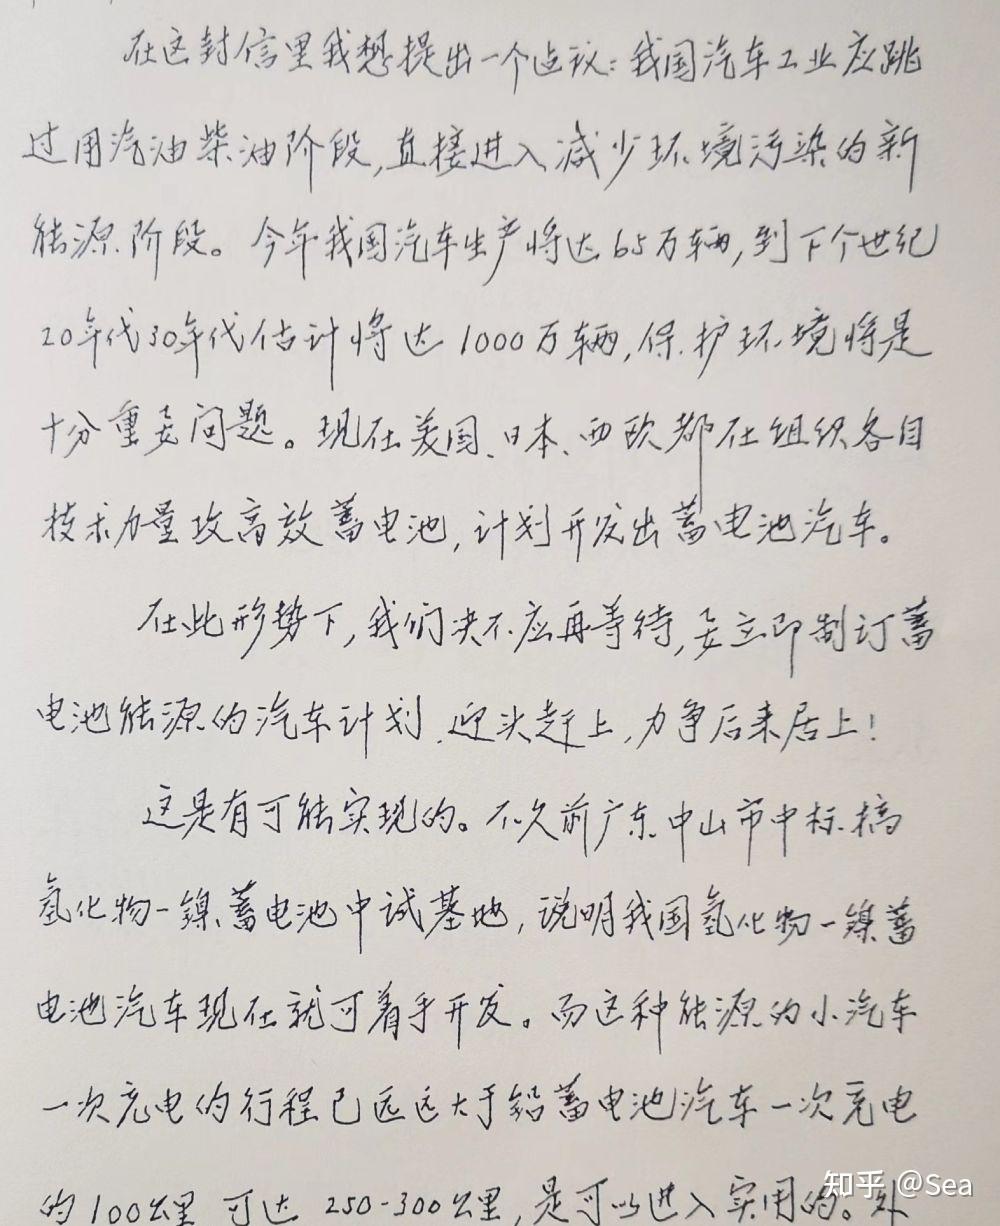 在这封信里我想提出一个建议：我国汽车工业应跳
过用汽油柴油阶段，直接进入减少环境污染的新
能源阶段。今年我国汽车生产将达65万辆，到下个世纪
20年代30年代估计将达1000万辆，保护环境将是
十分重要问题。现在美国、日本、西欧都在组织各自
技术力量攻高效蓄电池，计划开发出蓄电池汽车。
在此形势下，我们决不应再等待，要立即制订蓄
电池能源的汽车计划，迎头赶上，力争后来居上！
这是有可能实现的。不久前广东中山市中标搞
氢化物一镍蓄电池中试基地，说明我国氢化物一镍蓄
电池汽车现在就可着手开发。而这种能源的小汽车
一次充电的行程已远远大于铅蓄电池汽车一次充电
的100公里 可达 250-300公里，是可以进入实用的。处
知乎 @Sea